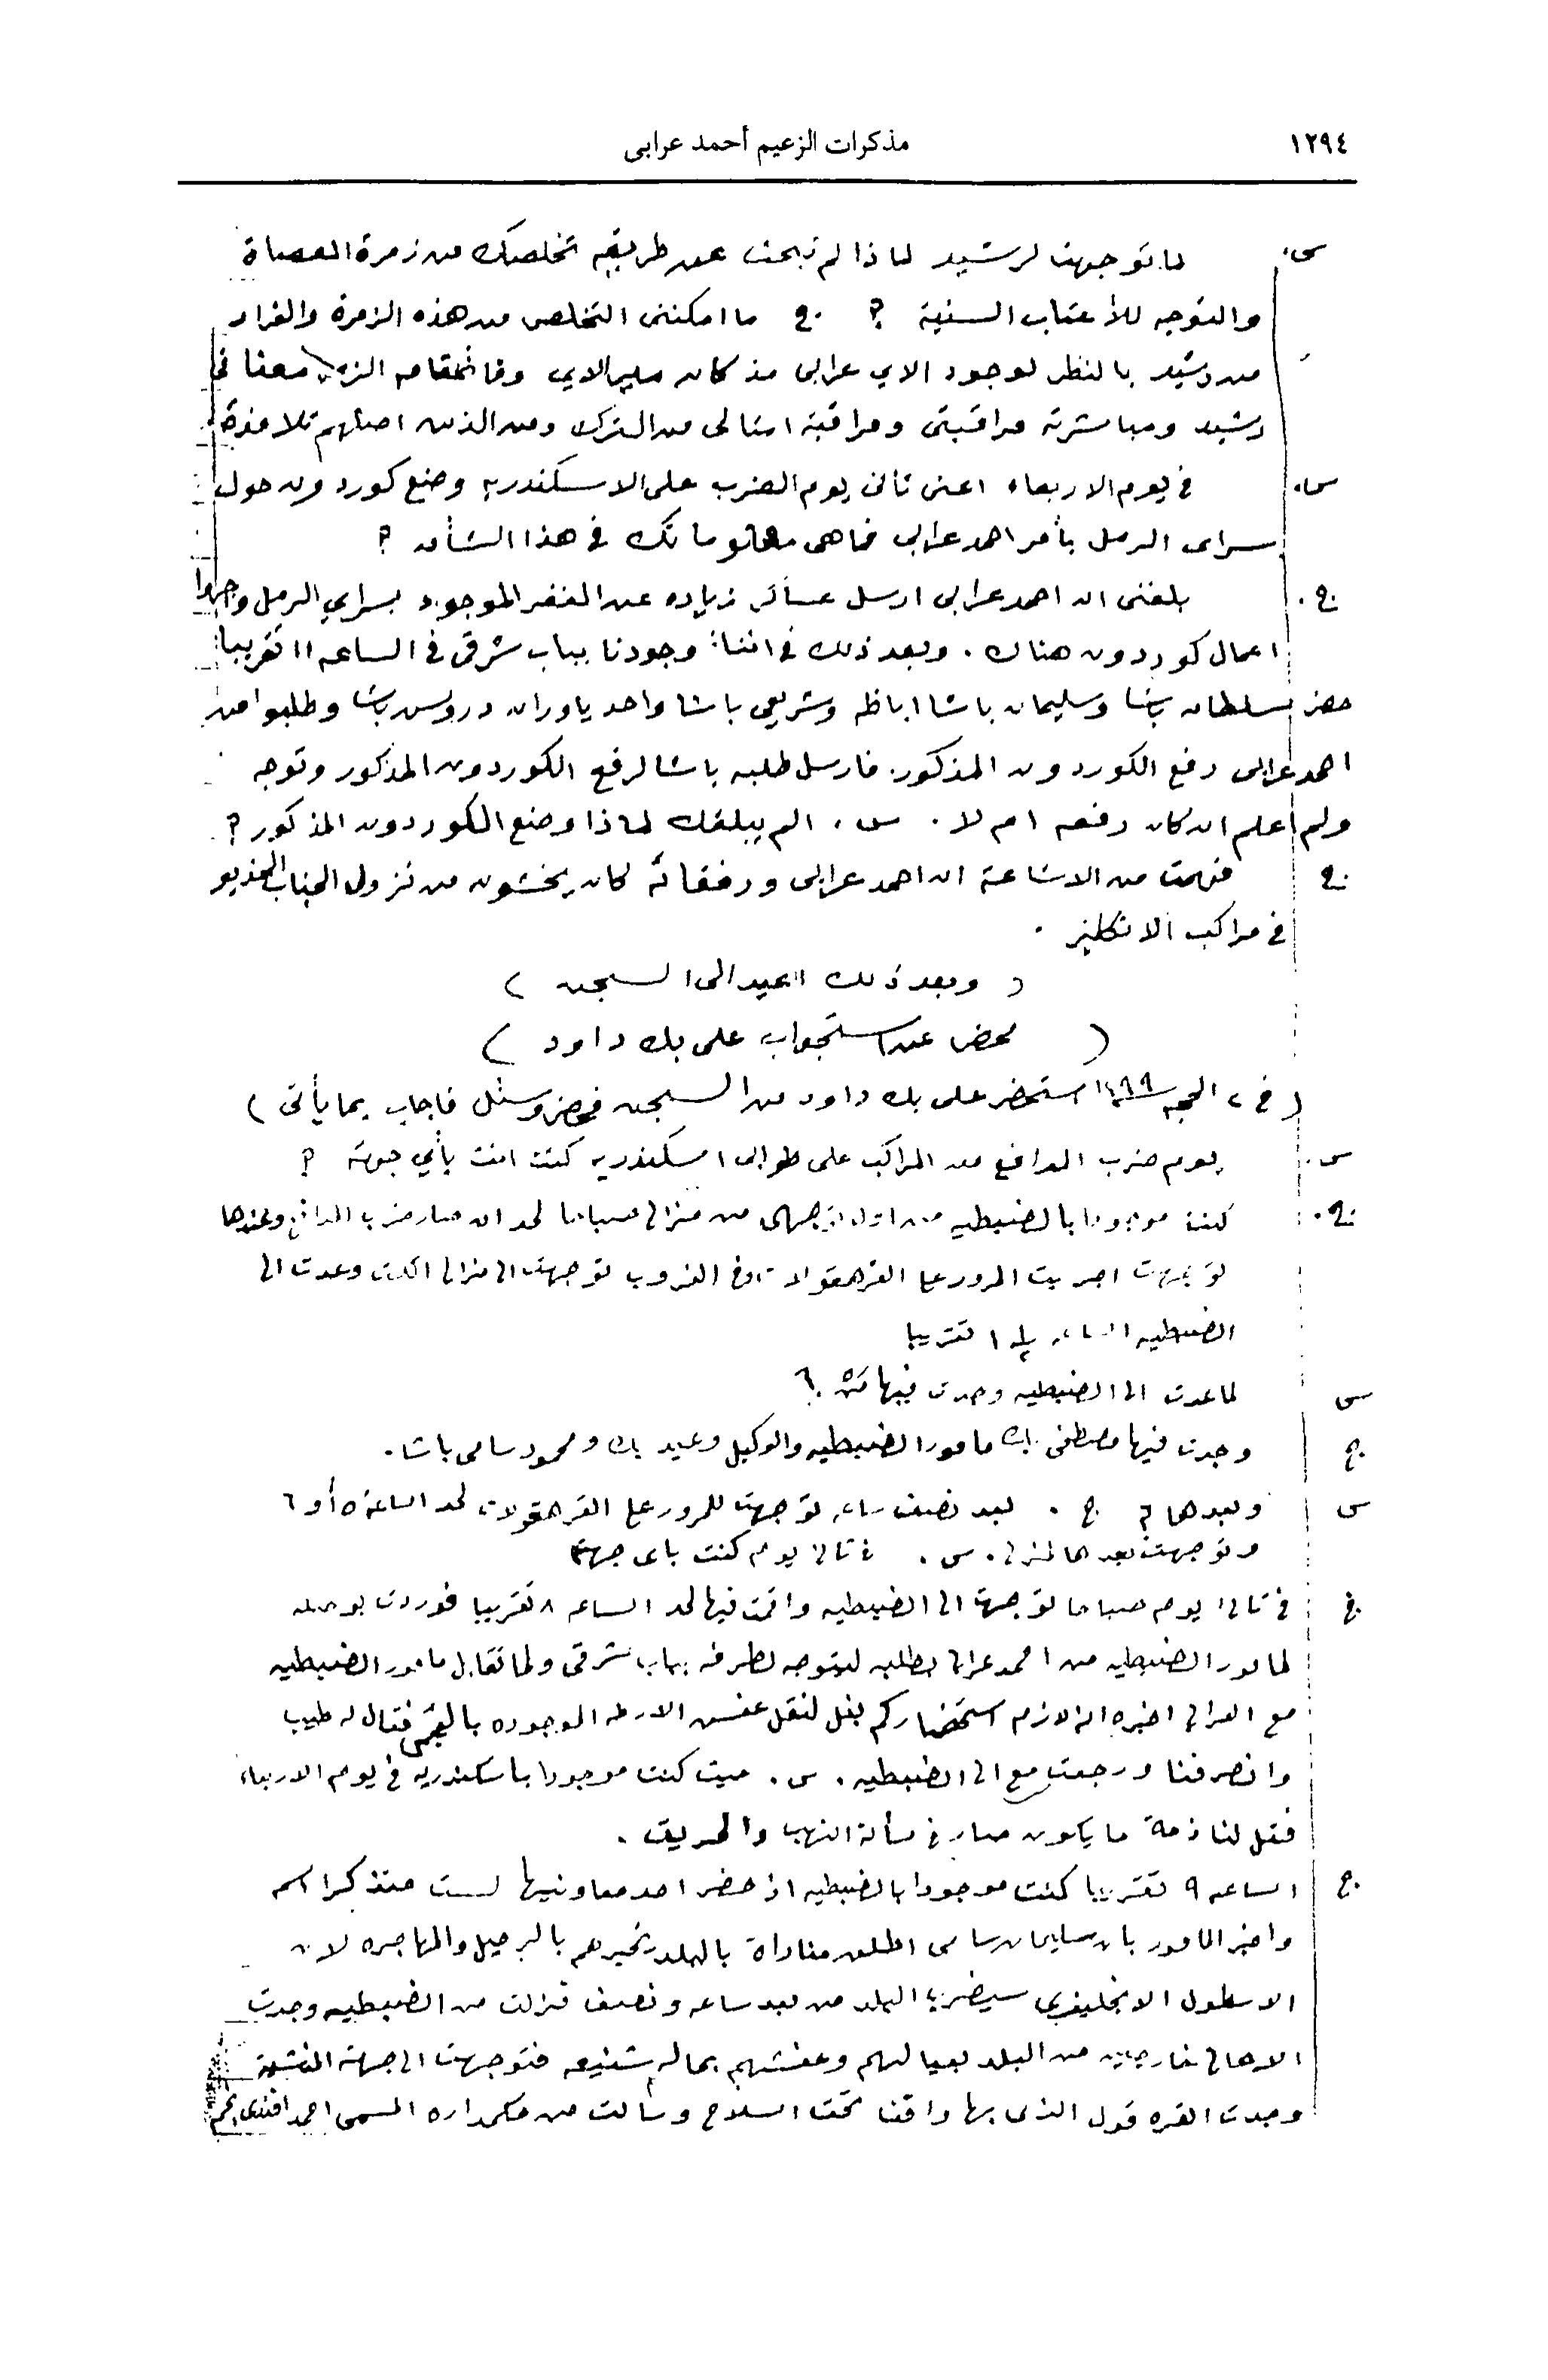 ١٢٩٤ مذكرات الزعيم أحمد عرابى
س. لما توجهت لرشيد لماذا لم تبحث عن طريقه تخلصك من زمرة العصاة
والتوجه للأعتاب السنية ؟ ج ما امكننى التخلص من هذه الزمرة والفرار
من رشيد بالنظر لوجود الاي عرابى مذ كان ميرالاي وقائمقامه معنا فى
رشيد ومباشرته مراقبتى ومراقبة امثالى من الترك ومن الذين اصلهم تلامذة
س. فى يوم الاربعاء اعنى ثانى يوم الضرب على الاسكندريه وضع كوردون حول
سراى الرمل بأمر احمد عرابى فما هى معلوماتك فى هذا الشأن ؟
ج. بلغنى ان احمد عرابى ارسل عساكر زياده عن الغفر الموجود بسراي الرمل واجروا
اعمال كوردون هناك . وبعد ذلك فى اثناء وجودنا بباب شرقى فى الساعه ١١ تقريبا
حضر سلطان باشا وسليمان باشا اباظه وشريعى باشا واحد ياوران درويش باشا وطلبوا من
احمد عرابى رفع الكوردون المذكور. فارسل طلبه باشا لرفع الكوردون المذكور وتوجه
ولم أعلم ان كان رفعه ام لا . س . الم يبلغك لماذا وضع الكوردون المذكور ؟
ج فهمت من الاشاعة ان احمد عرابى ورفقائه كان يخشون من نزول الجناب الخديو
فى مراكب الانكليز .
( وبعد ذلك اعيد الى السجن )
( محضر عن استجواب على بك داود )
( فى ٢ الحجه ١٢٩٩ استحضر على بك داود من السجن فحضر وسئل فاجاب بما يأتى )
س. يوم ضرب المدافع من المراكب على طوابى اسكندريه كنت انت بأي جهة ؟
ج. كنت موجودا بالضبطيه من اول توجهى من منزلى صباحا لحد ان صار ضرب المدافع وعندها
توجهت اجريت المرور على القرهقولات وفى الغروب توجهت الى منزلى اكلت وعدت الى
الضبطيه الساعه ١ ½ تقريبا
س لما عدت الى الضبطيه وجدت فيها مَن ؟
ج وجدت فيها مصطفى بك مامور الضبطيه والوكيل وعبيد بك ومحمود سامى باشا .
س وبعدها ؟ ج . بعد نصف ساعه توجهت للمرور على القرهقولات لحد الساعة ٥ أو ٦
وتوجهت بعدها لمنزلى . س . فى ثانى يوم كنت باى جهة
ج فى ثانى يوم صباحا توجهت الى الضبطيه واقمت فيها لحد الساعه ٨ تقريبا فوردت بوصله
لمامور الضبطيه من احمد عرابى بطلبه ليتوجه لطرفه بباب شرقى ولما تقابل مامور الضبطيه
مع العرابى اخبره انه لازم استحضاركم بغل لنقل عفش الاورطه الموجوده بالقمى فقال له طيب
وانصرفنا ورجعت معه الى الضبطيه . س . حيث كنت موجودا باسكندريه فى يوم الاربعاء
فقل لنا ذمة ما يكون صار فى مسألة النهب والحريق .
ج الساعه ٩ تقريبا كنت موجودا بالضبطيه اذ حضر احد معاونيها لست متذكر اسمه
واخبر المامور بان سليمان سامى اطلق مناداة بالبلد يخبرهم بالرحيل والمهاجره لان
الاسطول الانجليزى سيضرب البلد من بعد ساعه ونصف فنزلت من الضبطيه وجدت
الاهالى خارجين من البلد بعيالهم وعفشهم بحاله شنيعه فتوجهت الى جهة المنشية
وجدت القره قول الذى بها واقفا تحت السلاح وسألت من حكمداره المسمى احمد افندى